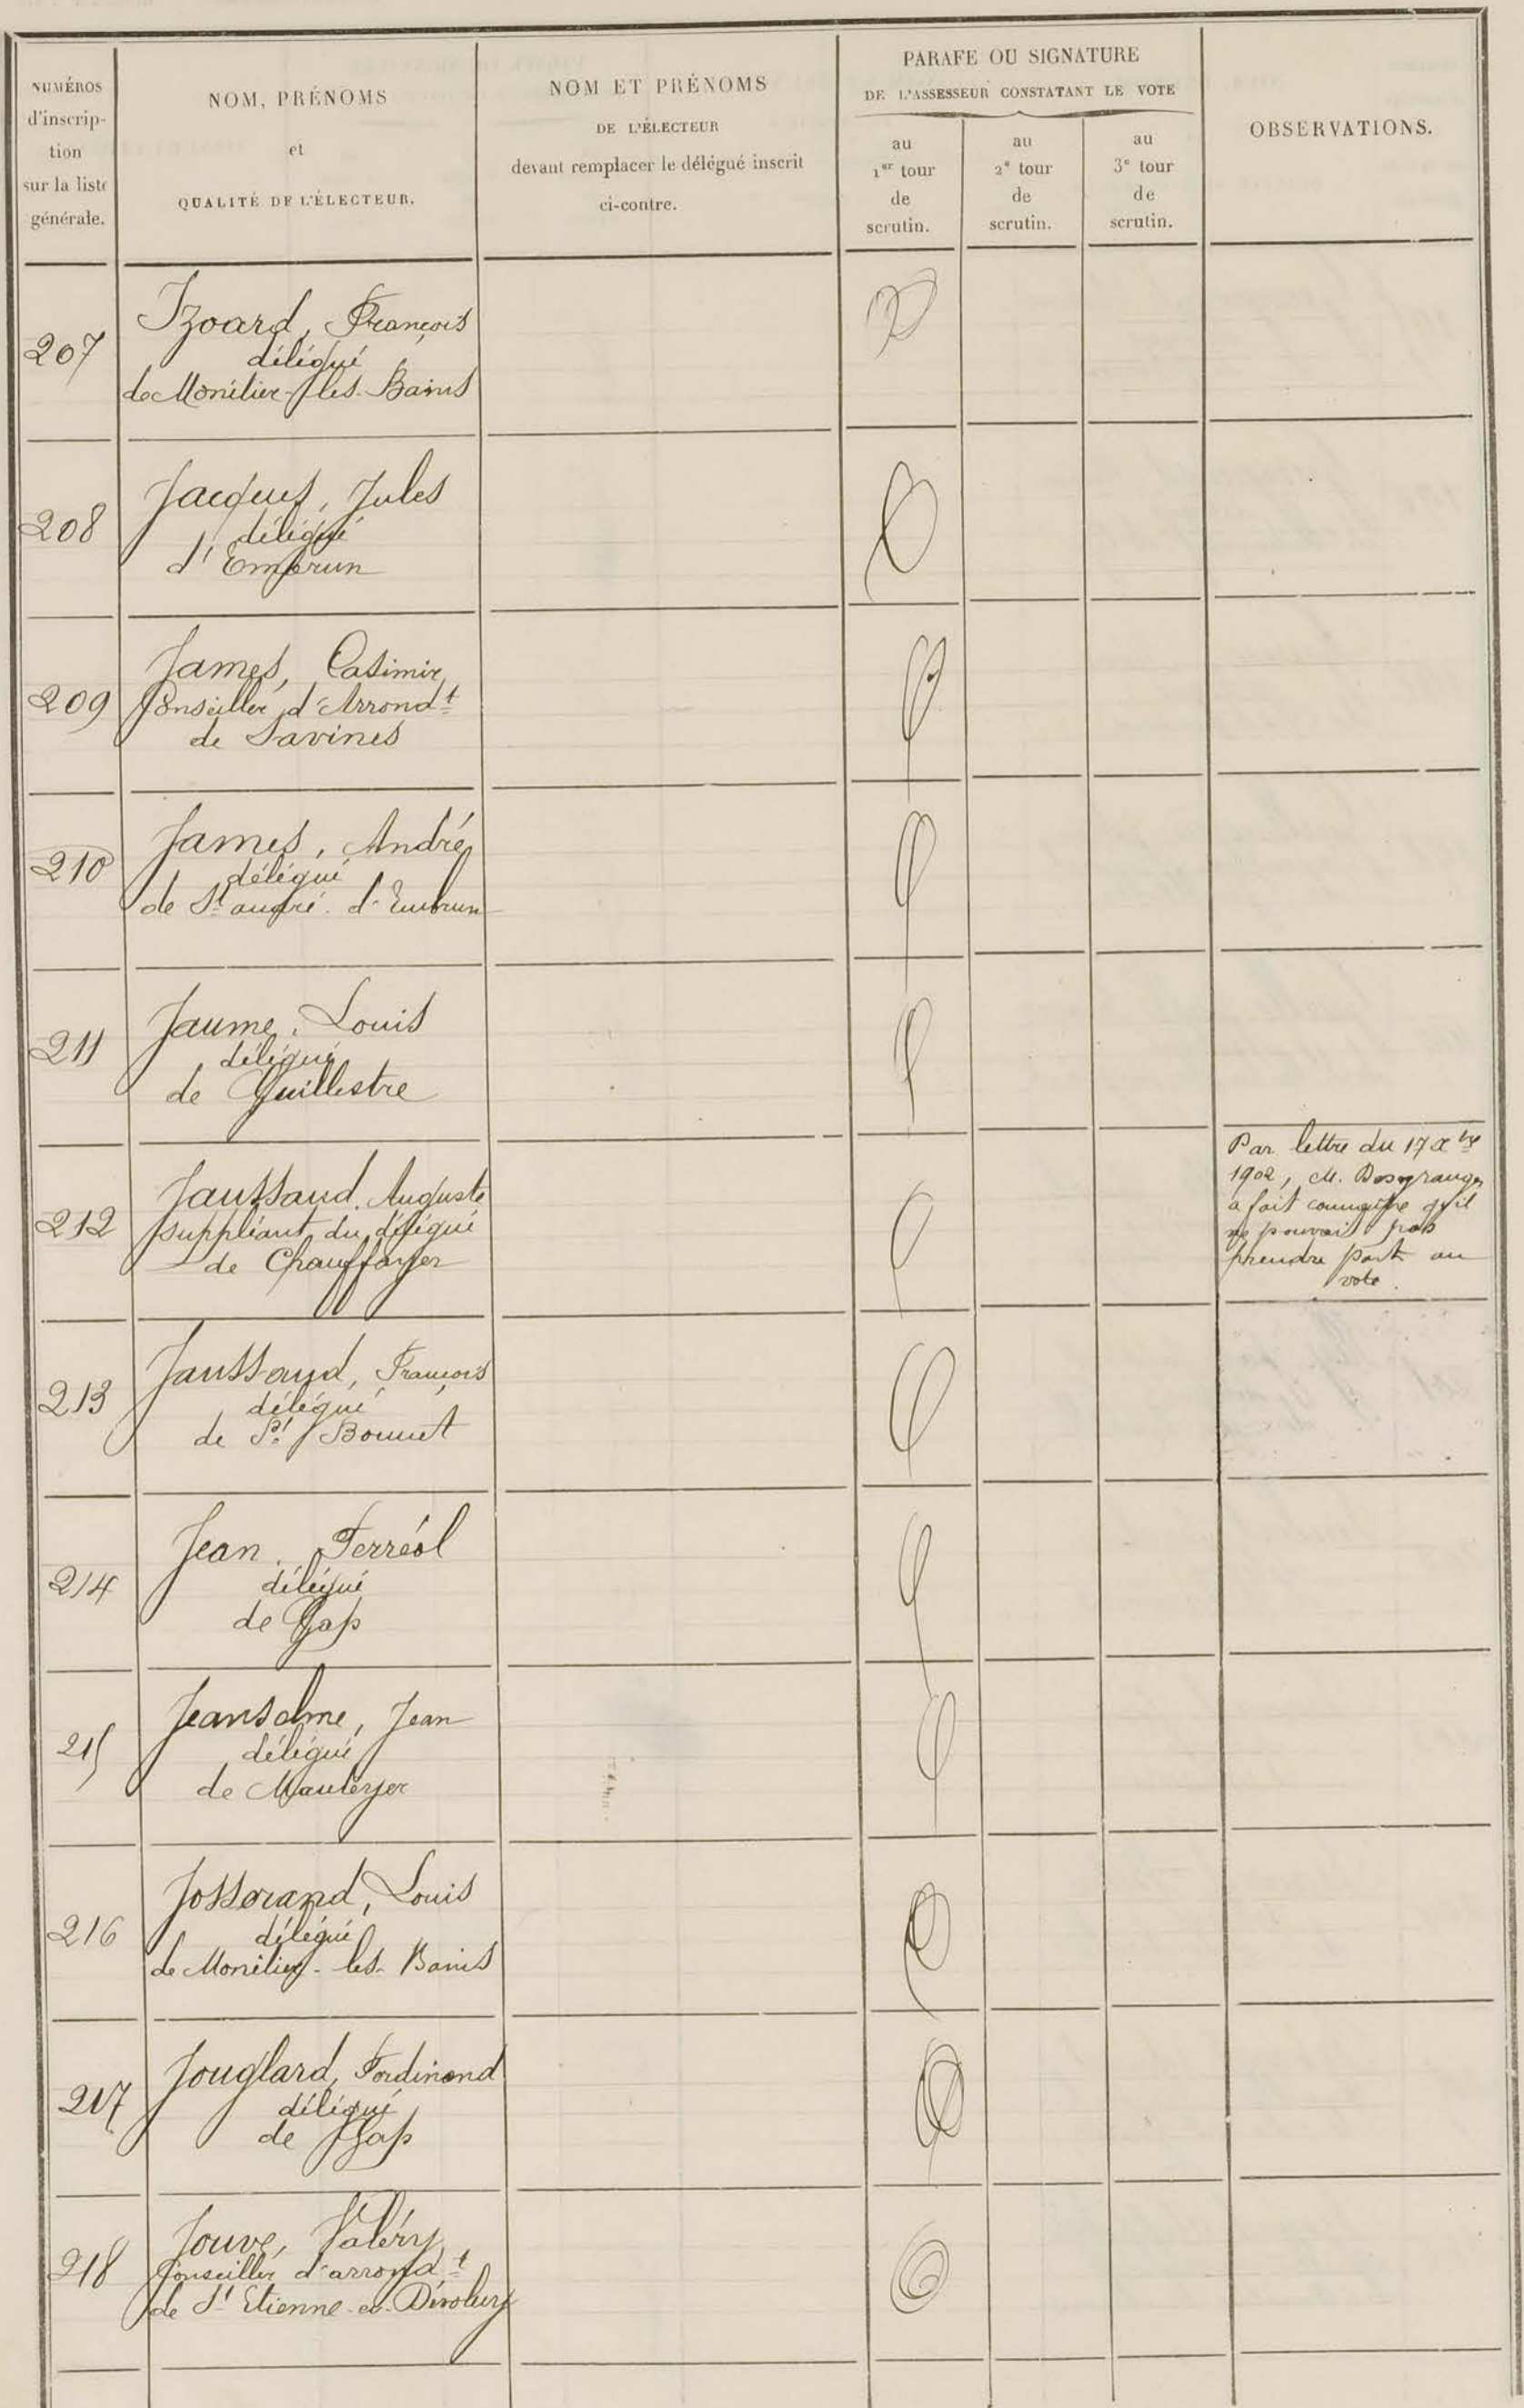 NUMÉROS
d'inscrip-
tion
sur la liste
générale.
NOM, PRÉNOMS
et
QUALITÉ DE L'ÉLECTEUR.
NOM ET PRÉNOMS
DE L'ÉLECTEUR
devant remplacer le délégué inscrit
ci-contre.
PARAFE OU SIGNATURE
DE L'ASSESSEUR CONSTATANT LE VOTE
au
1er tour
de
scrutin.
au
2e tour
de
scrutin.
au
3e tour
de
scrutin.
OBSERVATIONS.
207
Izoard, François
délégué
de Monêtier-les-Bains
208
Jacques, Jules
délégué
d'Embrun
209
James, Casimir
Conseiller d'Arrondt
de Savines
210
James, André
délégué
de St andré d'Embrun
211
Jaume, Louis
délégué
de Guillestre
212
Jaussaud, Auguste
suppléant du délégué
de Chauffayer
Par lettre du 17 Xbre
1902, M. Desgranges
a fait connaître qu'il
ne pouvait pas
prendre part au
vote.
213
Jaussaud, François
délégué
de St Bonnet
214
Jean, Ferréol
délégué
de Gap
215
Jeanselme, Jean
délégué
de Manteyer
216
Josserand, Louis
délégué
de Monêtier-les-Bains
217
Jouglard, Ferdinand
délégué
de Gap
218
Jouve, Valéry
Conseiller d'arrondt
de St Etienne-en-Dévoluy